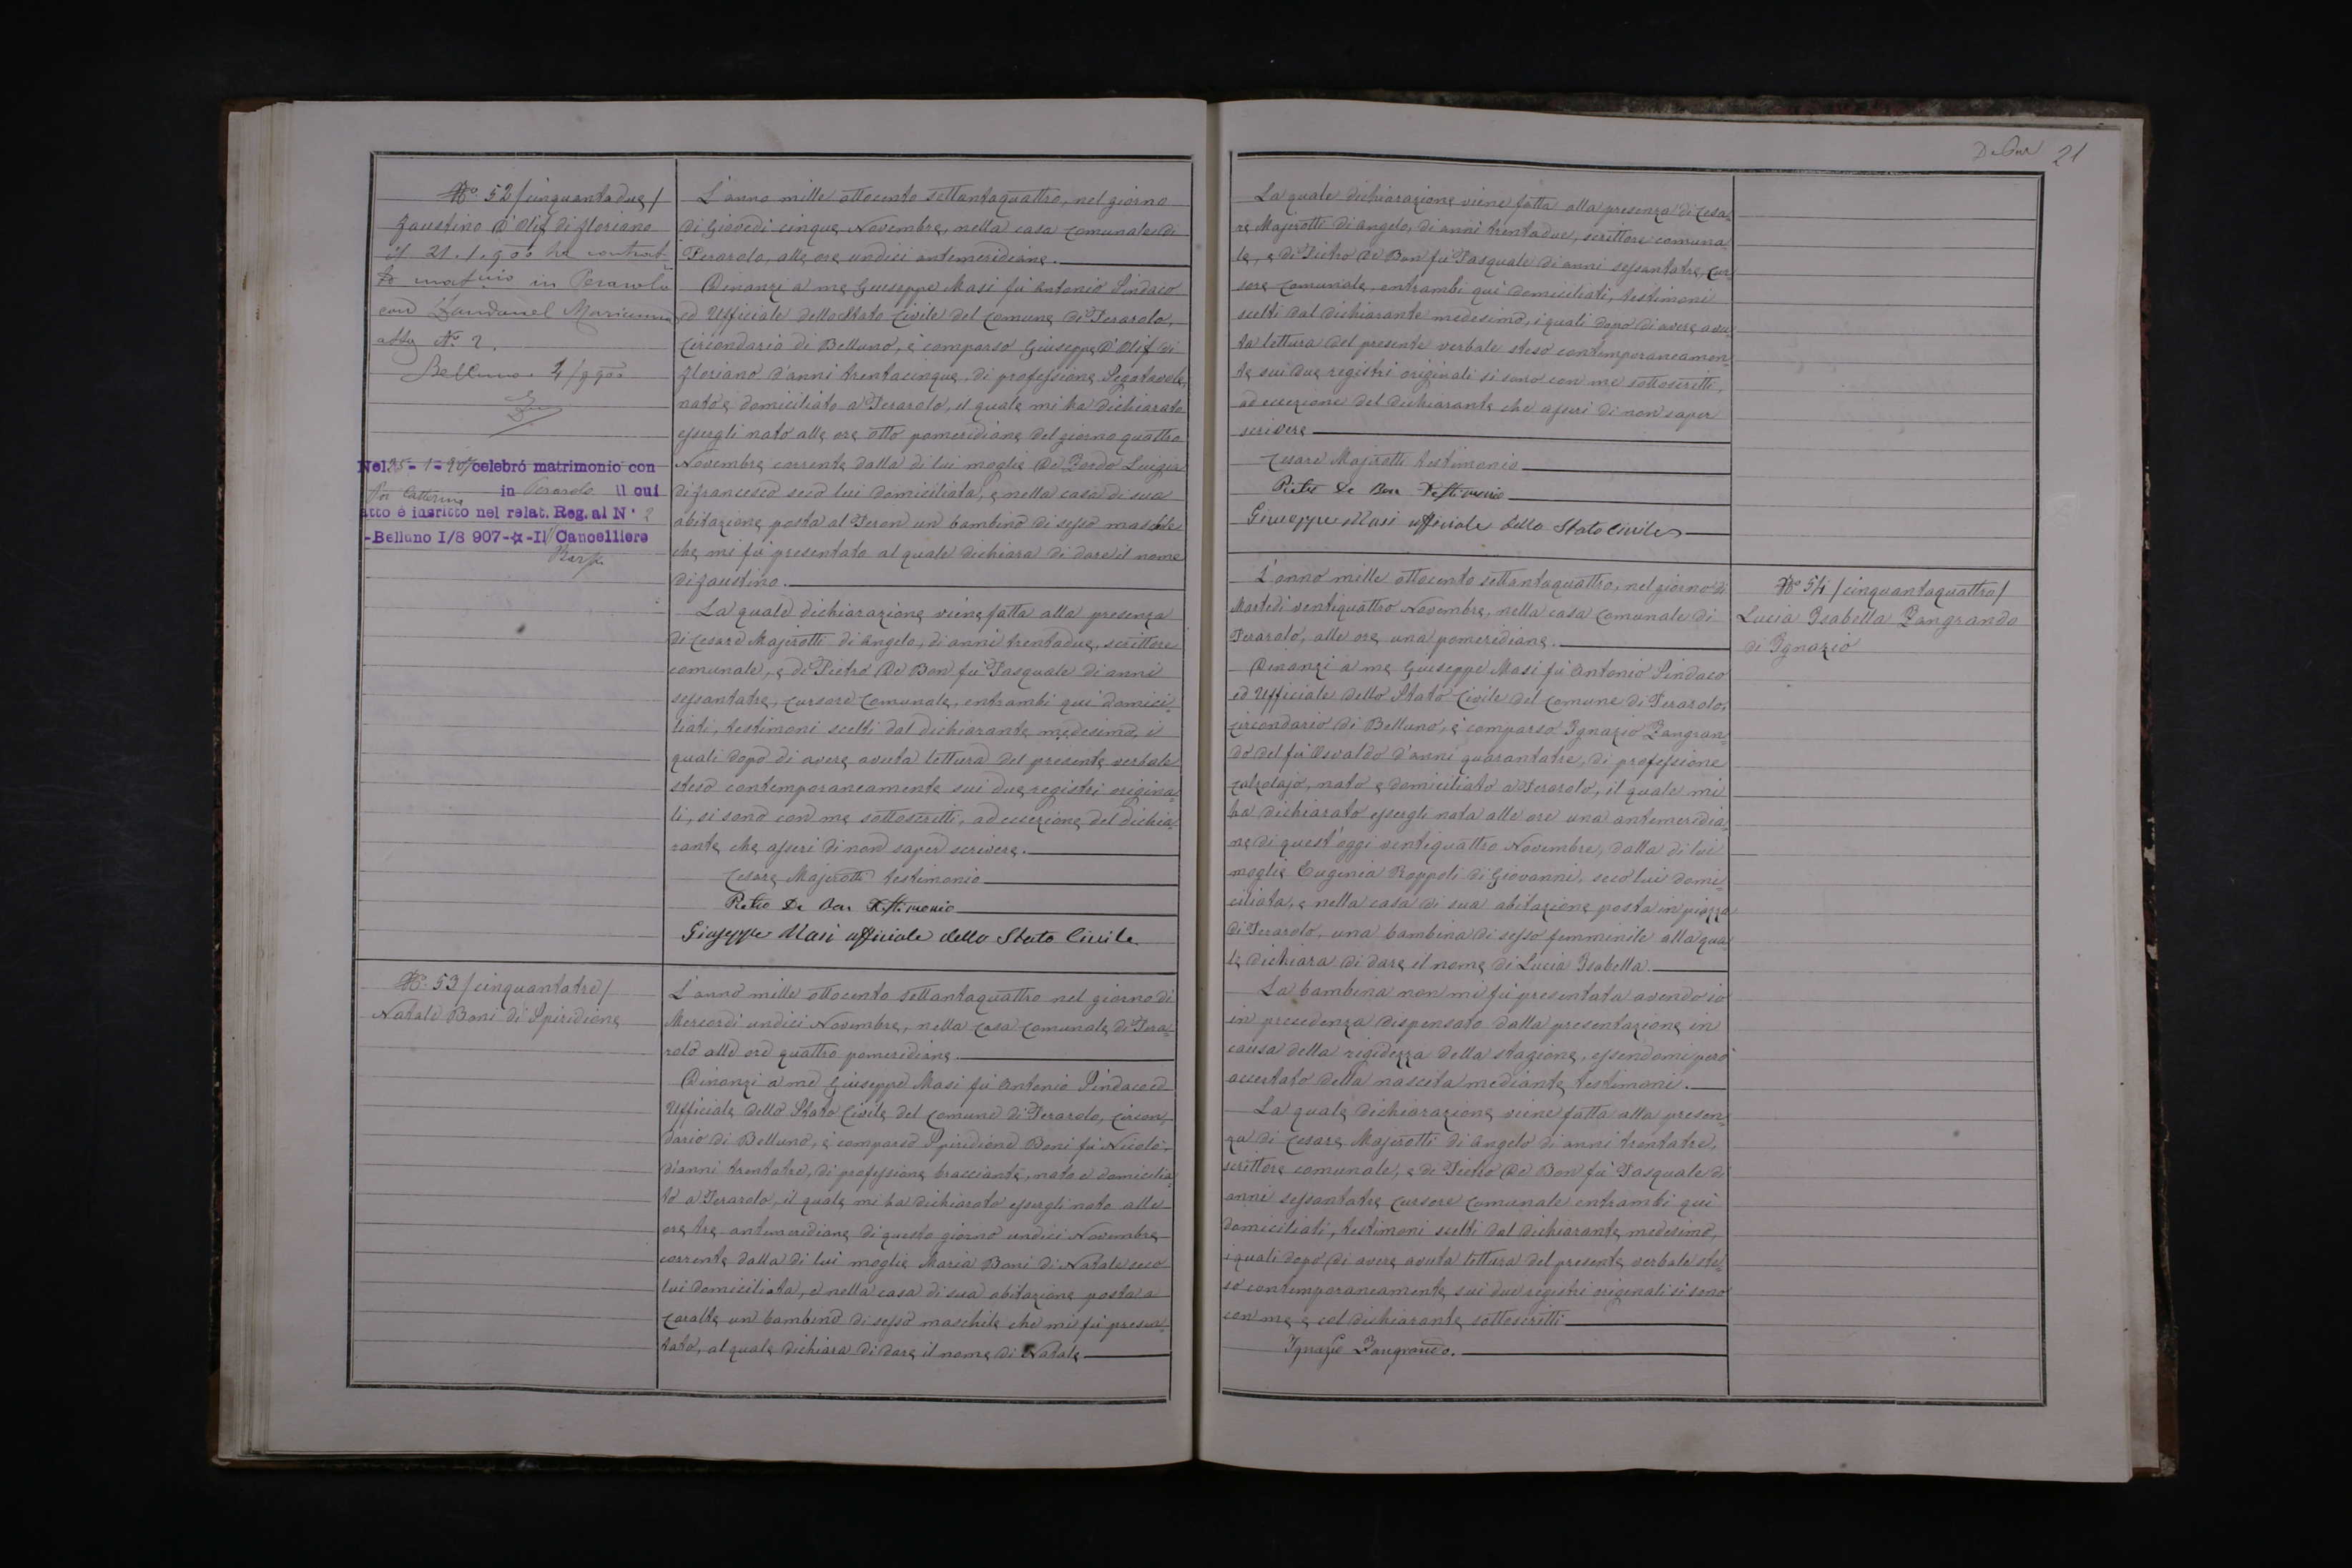 N.° 52 / cinquantadue /
Faustino D'Olif di Floriano
il 21.1.900 ha contrat-
to matrio in Perarolo
con Zandanel Marianna
atto N.° 2.
Belluno
Nel 25-1-907 celebró matrimonio con
Caterina in Perarolo il cui
atto é inscritto nel relat. Reg. al N. 2
-Belluno I/8 907-☆-Il Cancelliere
L'anno mille ottocento settantaquattro, nel giorno
di Giovedì cinque Novembre, nella casa comunale di
Perarolo, alle ore undici antemeridiane.
Dinanzi a me Giuseppe Masi fù Antonio Sindaco
ed Ufficiale dello Stato Civile del Comune di Perarolo,
Circondario di Belluno, è comparso Giuseppe D'Olif di
Floriano d'anni trentacinque, di professione Segatavole,
nato e domiciliato a Perarolo, il quale mi ha dichiarato
essergli nato alle ore otto pomeridiane del giorno quattro
Novembre corrente dalla di lui moglie De Zordo Luigia
di Francesco seco lui domiciliata, e nella casa di sua
abitazione posta al Peron un bambino di sesso maschile
che mi fù presentato al quale dichiara di dare il nome
di Faustino.
La quale dichiarazione viene fatta alla presenza
di Cesare Majerotti di Angelo, di anni trentadue, scrittore
comunale, e di Pietro De Bon fù Pasquale di anni
sessantatre, cursore comunale, entrambi quì domici-
liati, testimoni scelti dal dichiarante medesimo, i
quali dopo di avere avuta lettura del presente verbale
steso contemporaneamente sui due registri origina-
li, si sono con me sottoscritti, ad eccezione del dichia-
rante che asserì di non saper scrivere.
Cesare Majerotti testimonio
Pietro De Bon Testimonio
Giuseppe Masi ufficiale dello Stato Civile
N.° 53 / cinquantatre /
Natale Boni di Spiridione
L'anno mille ottocento settantaquattro nel giorno di
Mercordì undici Novembre, nella casa comunale di Pera-
rolo alle ore quattro pomeridiane.
Dinanzi a me Giuseppe Masi fù Antonio Sindaco ed
Ufficiale dello Stato Civile del Comune di Perarolo, Circon-
dario di Belluno, è comparso Spiridione Boni fù Nicolò,
d'anni trentatre, di professione bracciante, nato e domicilia-
to a Perarolo, il quale mi ha dichiarato essergli nato alle
ore tre antimeridiane di questo giorno undici Novembre
corrente dalla di lui moglie Maria Boni di Natale seco
lui domiciliata, e nella casa di sua abitazione posta a
Caralte un bambino di sesso maschile che mi fù presen-
tato, al quale dichiara di dare il nome di Natale
21
La quale dichiarazione viene fatta alla presenza di Cesa-
re Majerotti di Angelo, di anni trentadue, scrittore comuna-
le, e di Pietro De Bon fù Pasquale di anni sessantatre, cur-
sore comunale, entrambi quì domiciliati, testimoni
scelti dal dichiarante medesimo, i quali dopo di avere avu-
ta lettura del presente verbale steso contemporaneamen-
te sui due registri originali si sono con me sottoscritti,
ad eccezione del dichiarante che asserì di non saper
scrivere
Cesare Majerotti testimonio
Pietro De Bon Testimonio
Giuseppe Masi ufficiale dello Stato Civile
L'anno mille ottocento settantaquattro, nel giorno di
Martedì ventiquattro Novembre, nella casa comunale di
Perarolo, alle ore una pomeridiane.
Dinanzi a me Giuseppe Masi fù Antonio Sindaco
ed Ufficiale dello Stato Civile del Comune di Perarolo,
circondario di Belluno, è comparso Ignazio Zangran-
do del fù Osvaldo d'anni quarantatre, di professione
calzolajo, nato e domiciliato a Perarolo, il quale mi
ha dichiarato essergli nata alle ore una antemeridia-
ne di quest'oggi ventiquattro Novembre, dalla di lui
moglie Eugenia Roppoli di Giovanni, seco lui domi-
ciliata, e nella casa di sua abitazione posta in piazza
di Perarolo, una bambina di sesso femminile alla qua-
le dichiara di dare il nome di Lucia Isabella.
La bambina non mi fù presentata avendo io
in precedenza dispensato dalla presentazione in
causa della rigidezza della stagione, essendomi però
accertato della nascita mediante testimoni.
La quale dichiarazione viene fatta alla presen-
za di Cesare Majerotti di Angelo di anni trentatre,
scrittore comunale, e di Pietro De Bon fù Pasquale di
anni sessantatre cursore comunale entrambi quì
domiciliati, testimoni scelti dal dichiarante medesimo,
i quali dopo di avere avuta lettura del presente verbale ste-
so contemporaneamente sui due registri originali si sono
con me e col dichiarante sottoscritti
Ignazio Zangrando.
N.° 54 / cinquantaquattro /
Lucia Isabella Zangrando
di Ignazio